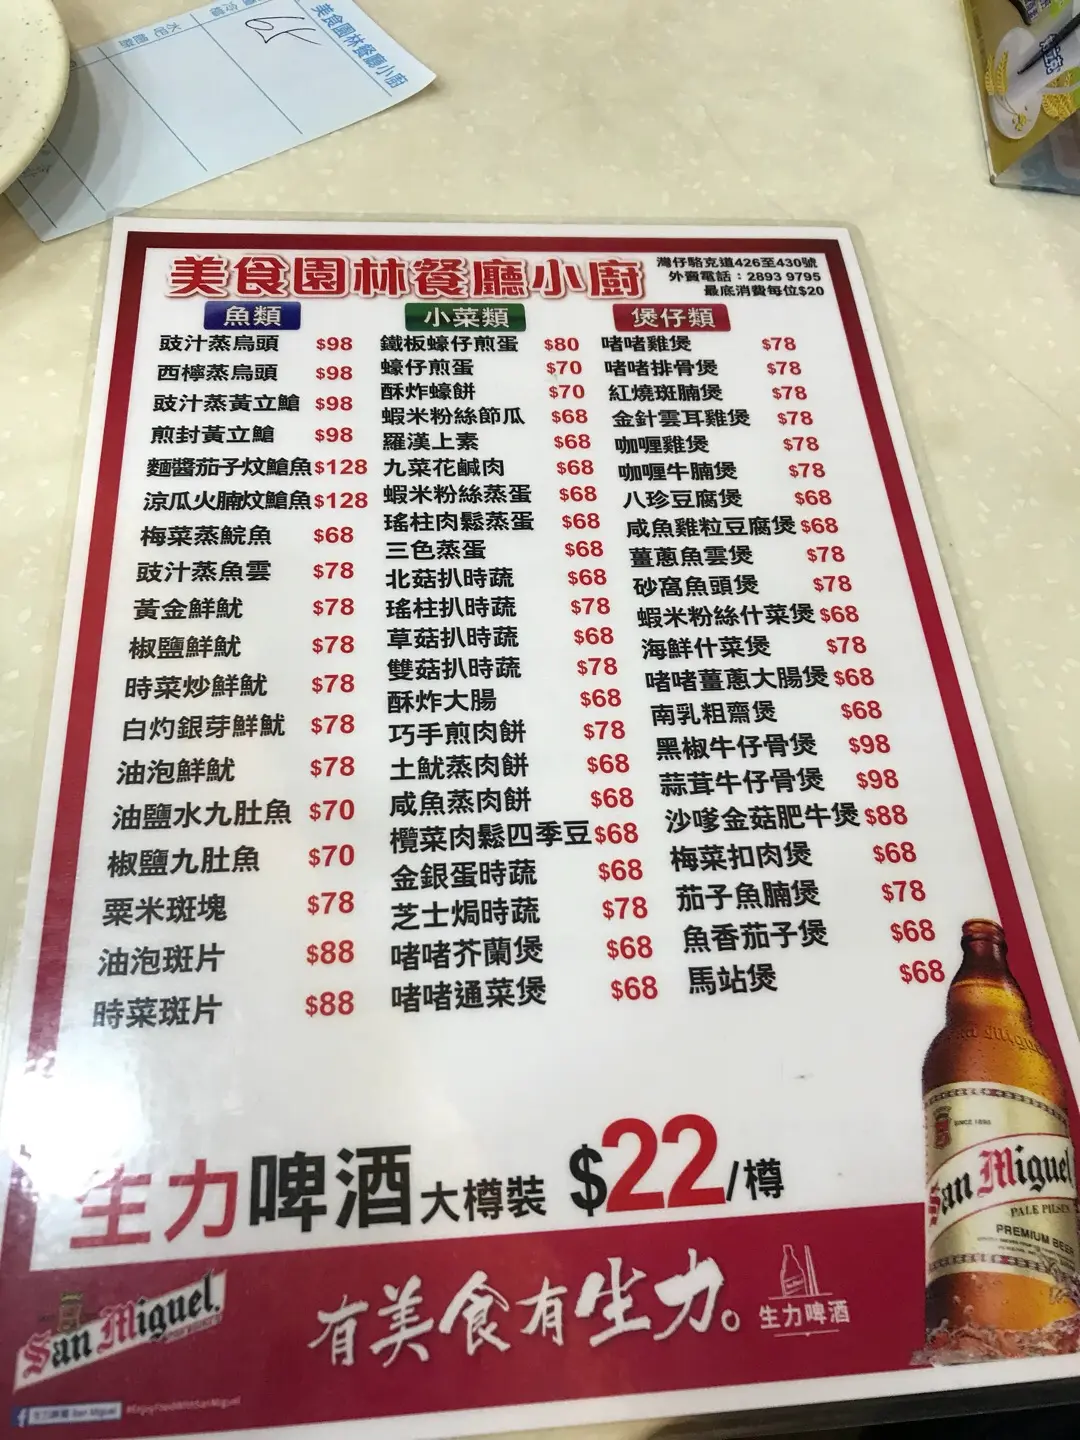 美食園林餐廳小廚
美食園林餐廳小廚
灣仔駱克道426至430號
外賣電話：2893 9795
最底消費每位$20
魚類
豉汁蒸烏頭 $98
西檸蒸烏頭 $98
豉汁蒸黃立鱠 $98
煎封黃立鱠 $98
麵醬茄子炆鱠魚 $128
涼瓜火腩炆鱠魚 $128
梅菜蒸鯇魚 $68
豉汁蒸魚雲 $78
黃金鮮魷 $78
椒鹽鮮魷 $78
時菜炒鮮魷 $78
白灼銀芽鮮魷 $78
油泡鮮魷 $78
油鹽水九肚魚 $70
椒鹽九肚魚 $70
粟米斑塊 $78
油泡斑片 $88
時菜斑片 $88
小菜類
鐵板蠔仔煎蛋 $80
蠔仔煎蛋 $70
酥炸蠔餅 $70
蝦米粉絲節瓜 $68
羅漢上素 $68
九菜花鹹肉 $68
蝦米粉絲蒸蛋 $68
瑤柱肉鬆蒸蛋 $68
三色蒸蛋 $68
北菇扒時蔬 $68
瑤柱扒時蔬 $78
草菇扒時蔬 $68
雙菇扒時蔬 $78
酥炸大腸 $68
巧手煎肉餅 $78
土魷蒸肉餅 $68
咸魚蒸肉餅 $68
欖菜肉鬆四季豆 $68
金銀蛋時蔬 $68
芝士焗時蔬 $78
啫啫芥蘭煲 $68
啫啫通菜煲 $68
煲仔類
啫啫雞煲 $78
啫啫排骨煲 $78
紅燒斑腩煲 $78
金針雲耳雞煲 $78
咖喱雞煲 $78
咖喱牛腩煲 $78
八珍豆腐煲 $68
咸魚雞粒豆腐煲 $68
薑蔥魚雲煲 $78
砂窩魚頭煲 $78
蝦米粉絲什菜煲 $68
海鮮什菜煲 $78
啫啫薑蔥大腸煲 $68
南乳粗齋煲 $68
黑椒牛仔骨煲 $98
蒜茸牛仔骨煲 $98
沙嗲金菇肥牛煲 $88
梅菜扣肉煲 $68
茄子魚腩煲 $78
魚香茄子煲 $68
馬站煲 $68
生力啤酒 大樽裝 $22/樽
San Miguel
有美食有生力。
生力啤酒
生力啤酒 San Miguel
#EnjoyFoodWithSanMiguel
SINCE 1890
San Miguel
PALE PILSEN
PREMIUM BEER